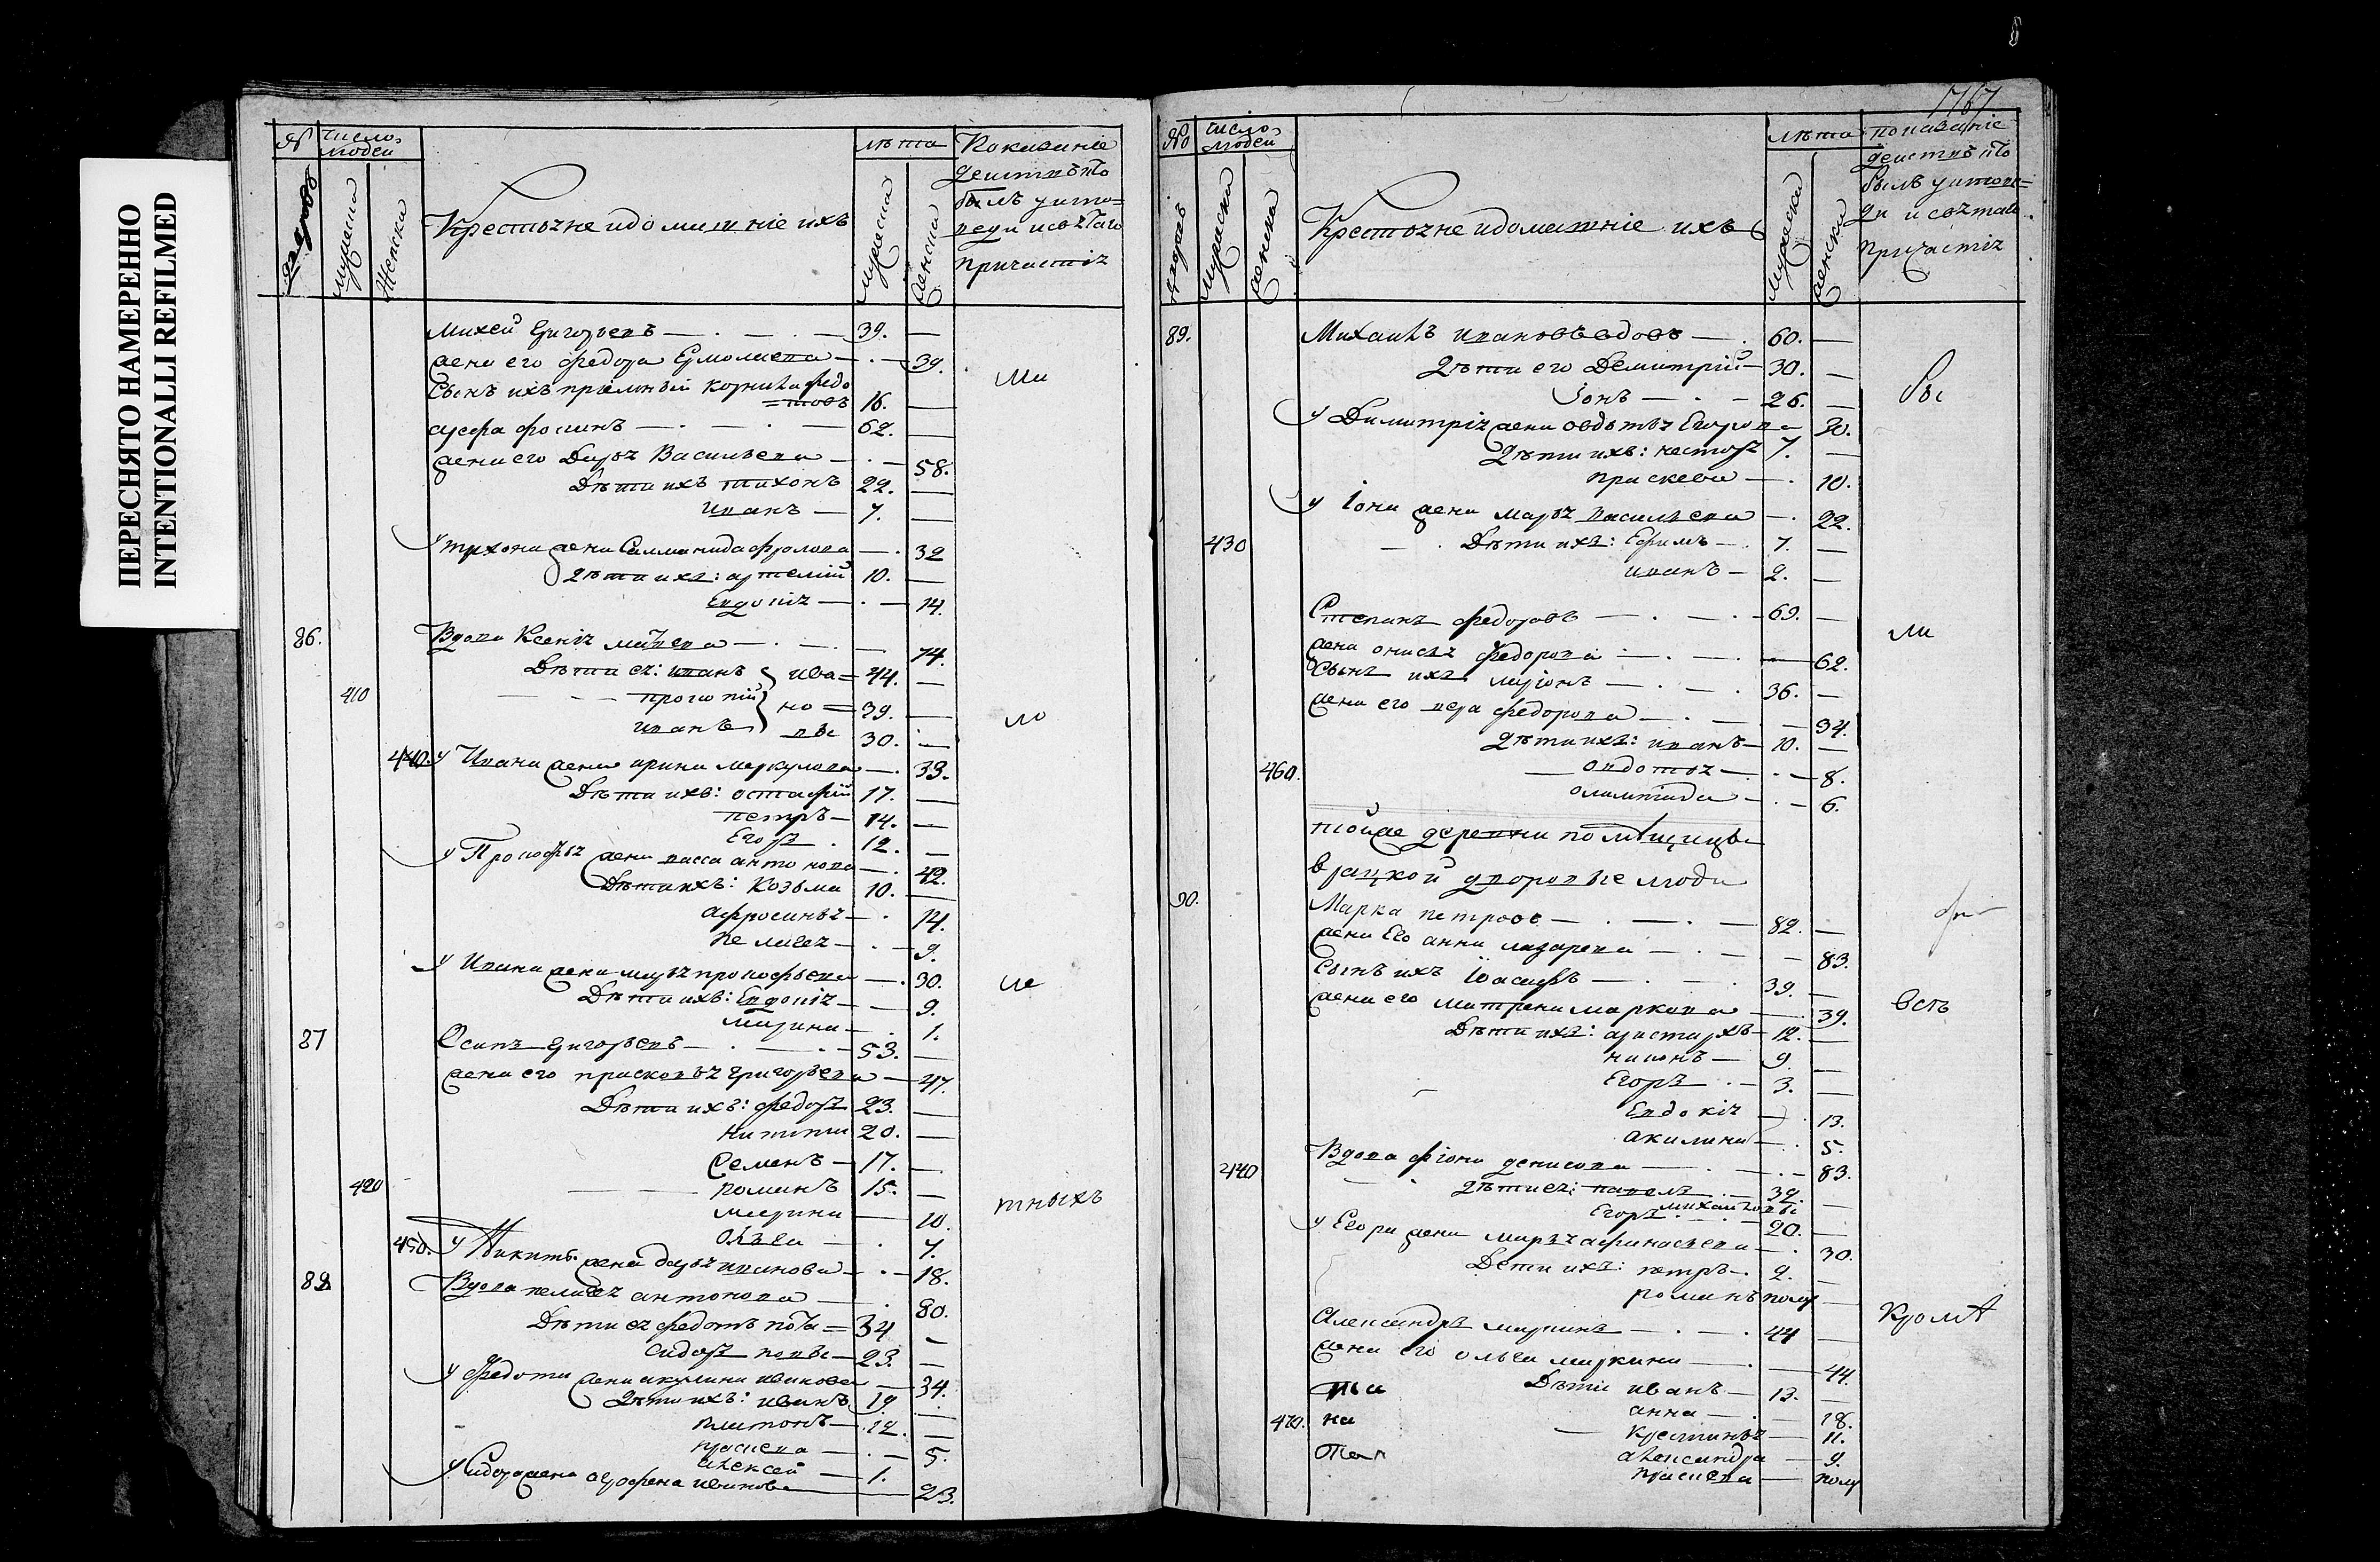 ПЕРЕСНЯТО НАМЕРЕННО
INTENTIONALLI REFILMED
№ число людей лѣта Показаніе
дворовъ мужеска женска Крестьяне идомашніе ихъ мужеска женска
дѣиствъ кто
былъ уиспо
веди исвятаго
причастія
михей Григорьевъ 39.
жена его федора Ермолаева 39.
Сынъ ихъ пріемный корнила федо
=товъ 16.
ми
62.
жена его Дарья Васильева 58.
Дѣти ихъ тихонъ 22.
иванъ 7.
У тихона жена Саламанида фролова 32
дѣти ихъ: артемій 10.
Евдокія 14.
86. Вдова Ксенія 74.
Дѣти ея: иванъ ива= 44.
410 прокопій но= 39.
иванъ вы 30.
ло
440. У Ивана жена арина меркулова 33.
Дѣти ихъ: остафій 17.
петръ 14.
Егоръ 12.
у Прокофья жена васса антонова 42.
Дѣти ихъ: Козьма 10.
афросинья 14.
пелагея 9.
У Ивана жена марья прокофьева 30.
Дѣти ихъ: Евдокія 9.
марина 1.
87 Осипъ Григорьевъ 53.
жена его прасковья григорьева 47.
Дѣти ихъ: федоръ 23.
никита 20.
Семенъ 17.
420 романъ 15.
тныхъ
марина 10.
Ольга 7.
450. У Никиты жена дарья иванова 18.
88 Вдова пелагея антонова 80.
Дѣти ея федотъ 34
сидоръ 23.
У Федота жена акулина иванова 34.
Дѣти ихъ: иванъ 19
платонъ 12.
5.
алексей 1.
У Сидора жена агрофена иванова 23.
1767
№ число людей лѣта показаніе
мужеска женска Крестьяне идомашніе ихъ мужеска женска
дѣиствъ кто
былъ уиспове=
ди исвятаго
Причастія
89. Михаилъ ивановъ вдовъ 60.
Дѣти его Демитрій 30.
Іонъ 26.
вы
У Димитрія жена овдотья Егорова 30.
Дѣти ихъ: несторъ 7.
прасковья 10.
у Іона жена марья васильева 22.
430 Дѣти ихъ: Ефимъ 7.
иванъ 2.
Степанъ федоровъ 69.
ли
жена анисья федорова 62.
Сынъ ихъ ларіонъ 36.
жена его вера федорова 34.
дѣти ихъ: иванъ 10.
460. овдотья 8.
олимпіада 6.
тойже деревни помѣщицы
врацкой дворовые люди
90. Марка петровъ 82.
жена Его анна лазарева 83.
Сынъ ихъ Іоасафъ 39.
жена его матрена маркова 39.
Дѣти ихъ: аристархъ 12.
никонъ 9
Егоръ 3.
Евдокія 13.
акилина 5.
Вдова фіона денисова 83.
440 дѣти ея: павелъ 32.
Егоръ михайловы 20.
у Егора жена марья афонасьева 30.
Дети ихъ: петръ 2.
романъ полу
Кромѣ
Александръ маркинъ 44
жена его ольга маркина 44.
Дѣти иванъ 13.
470. на анна 18.
11.
александра 9.
полу